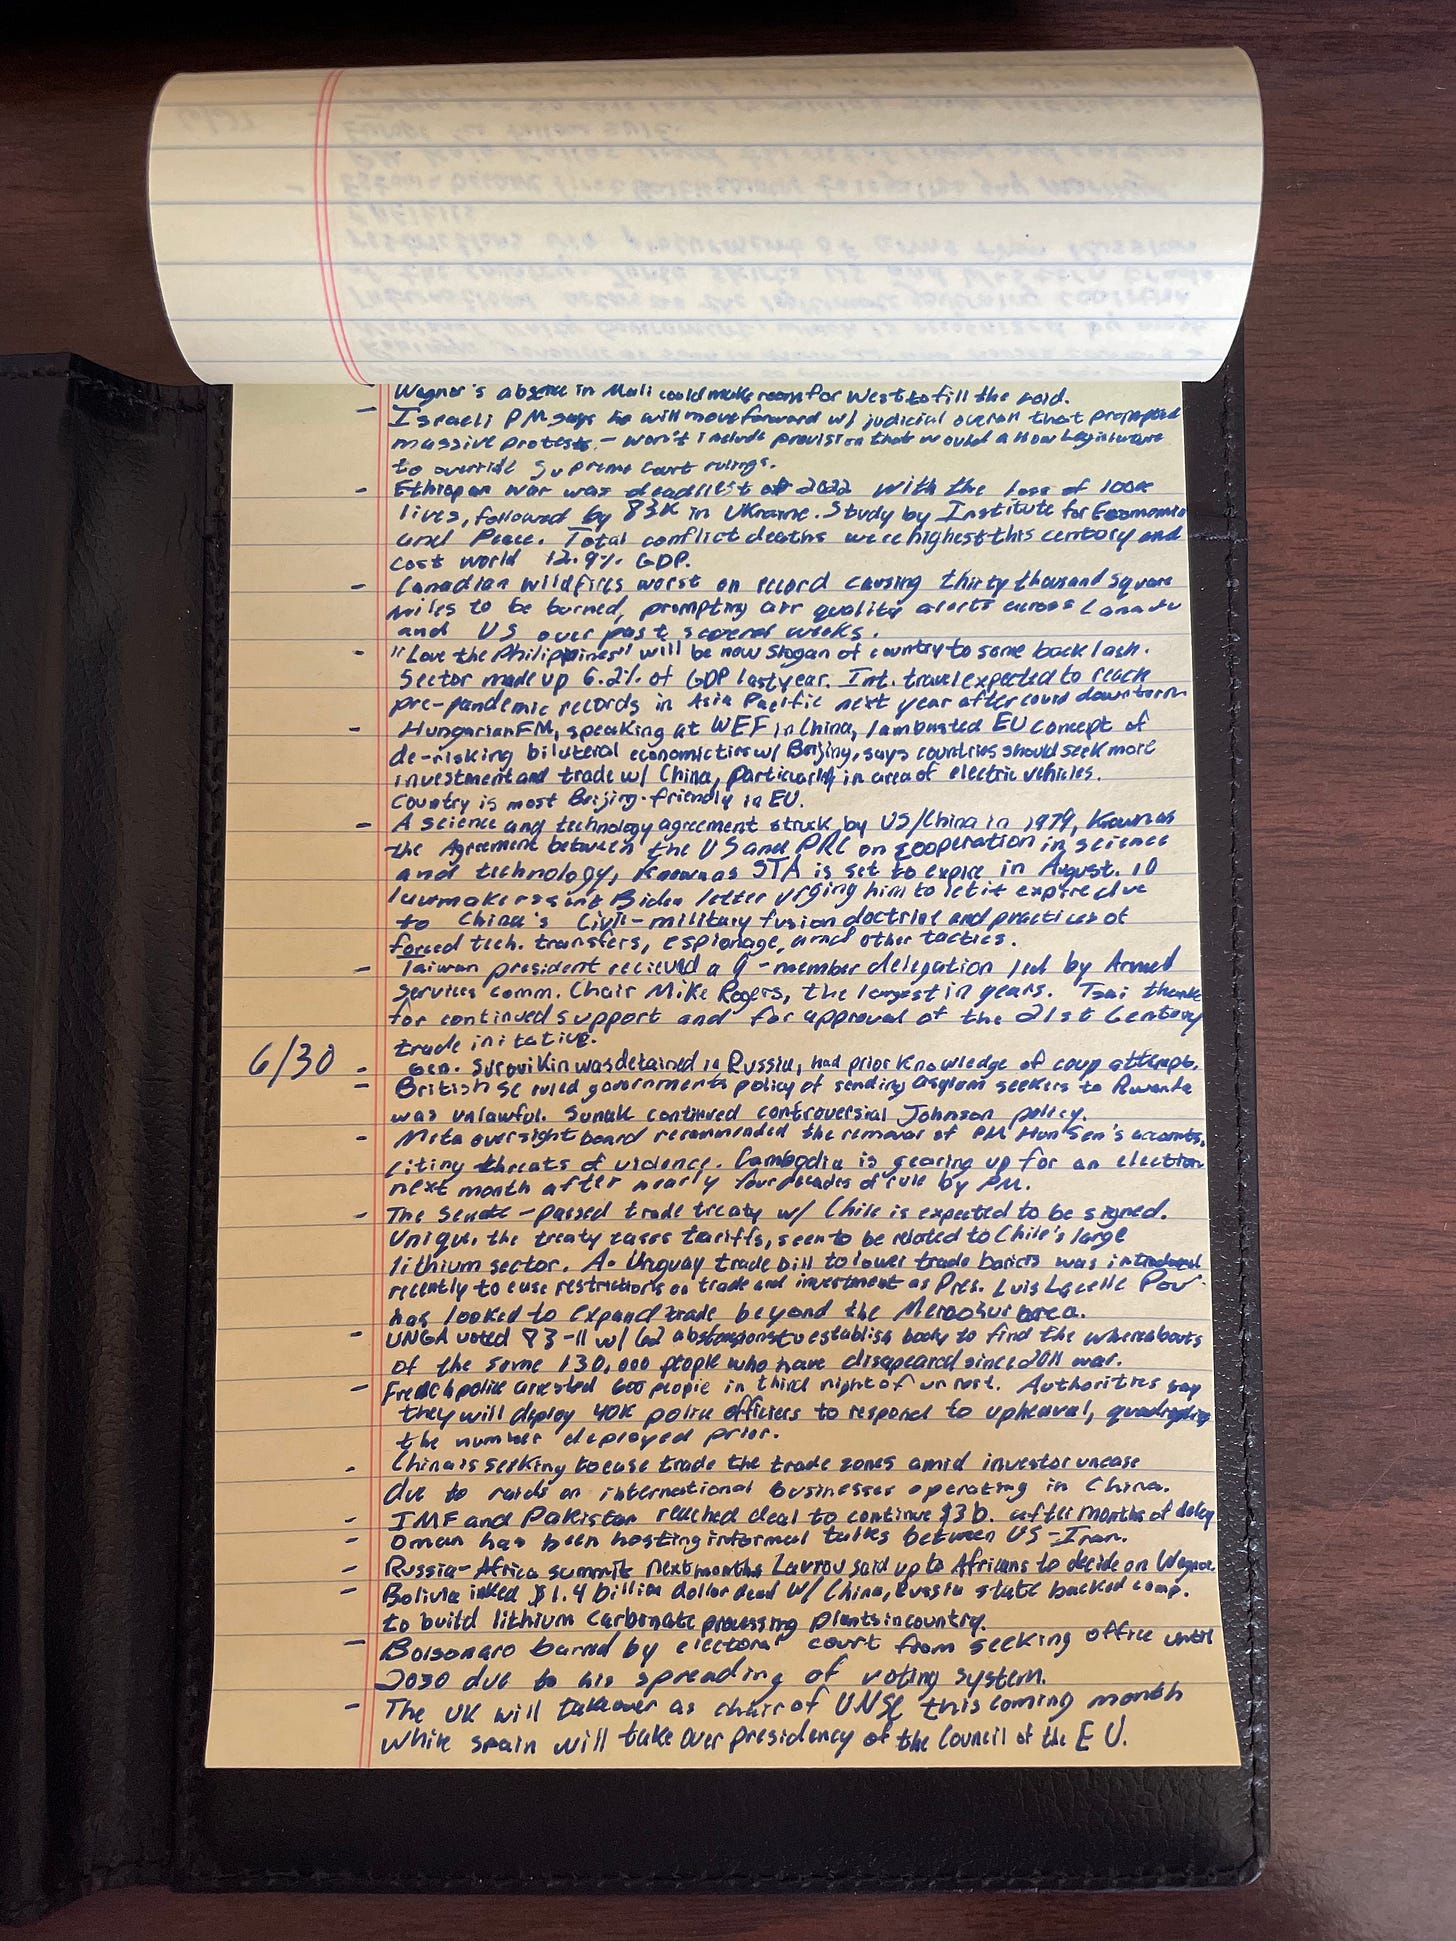 - Wagner's absence in Mali could make room for West to fill the void.
- Israeli PM says he will move forward w/ judicial overall that prompted
massive protests - won't include provision that would allow legislature
to override Supreme Court rulings.
- Ethiopan war was deadliest of 2022 with the loss of 100k
lives, followed by 83K in Ukraine. Study by Institute for Economics
and Peace. Total conflict deaths were highest this century and
cost world 12.9% GDP.
- Canadian wildfires worst on record causing thirty thousand square
miles to be burned, prompting air quality alerts across Canada
and US over past several weeks.
- "Love the Philippines" will be new slogan of country to some backlash.
Sector made up 6.2% of GDP last year. Int. travel expected to reach
pre-pandemic records in Asia Pacific next year after covid downturn
- Hungarian FM, speaking at WEF in China, lambasted EU concept of
de-risking bilateral economic ties w/ Beijing, says countries should seek more
investment and trade w/ China, particularly in area of electric vehicles.
Country is most Beijing-friendly in EU.
- A science and technology agreement struck by US/China in 1979, known as
the Agreement between the US and PRC on cooperation in science
and technology, known as STA is set to expire in August. 10
lawmakers sent Biden letter urging him to let it expire due
to China's Civil-military fusion doctrine and practices of
forced tech. transfers, espionage, and other tactics.
- Taiwan president recieved a 9-member delegation led by Armed
Services comm. Chair Mike Rogers, the largest in years. Tsai thanks
for continued support and for approval of the 21st Century
trade initative.
6/30 - Gen. Surovikin was detained in Russia, had prior knowledge of coup attempt.
- British SC ruled governments policy of sending asylum seekers to Rwanda
was unlawful. Sunak continued controversial Johnson policy.
- Meta oversight board recommended the removal of PM Hun Sen's accounts,
citing threats of violence. Cambodia is gearing up for an election
next month after nearly four decades of rule by PM.
- The Senate-passed trade treaty w/ Chile is expected to be signed.
Unique, the treaty eases tariffs, seen to be related to Chile's large
lithium sector. A Uruguay trade bill to lower trade barriers was introduced
recently to ease restrictions on trade and investment as Pres. Luis Lacelle Pou
has looked to expand trade beyond the Mercosur area.
- UNGA voted 83-11 w/ 62 abstensions to establish body to find the whereabouts
of the some 130,000 people who have disapeared since 2011 war.
- French police arrested 600 people in third night of unrest. Authorities say
they will deploy 40K police officers to respond to upheaval, quadrupling
the number deployed prior.
- China is seeking to ease trade the trade zones amid investor unease
due to raids on international businesses operating in China.
- IMF and Pakistan reached deal to continue $3b. after months of delay
- Oman has been hosting informal talks between US-Iran.
- Russia-Africa summit next month. Lavrov said up to Africans to decide on Wagner.
- Bolivia inked $1.4 billion dollar deal w/ China, Russia state backed comp.
to build lithium carbonate processing plants in country.
- Bolsonaro barred by electoral court from seeking office until
2030 due to his spreading of voting system.
- The UK will takeover as chair of UNSC this coming month
while Spain will take over presidency of the Council of the EU.